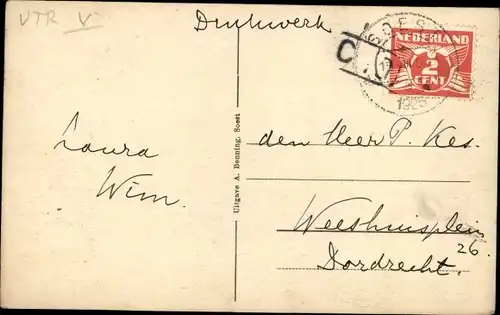 VTR V
Drukwerk
SOEST
1925
NEDERLAND
2
CENT
C
Laura
Wim.
Uitgave A. Benning, Soest
den Heer P. Kes.
Weeshuisplein
26
Dordrecht.